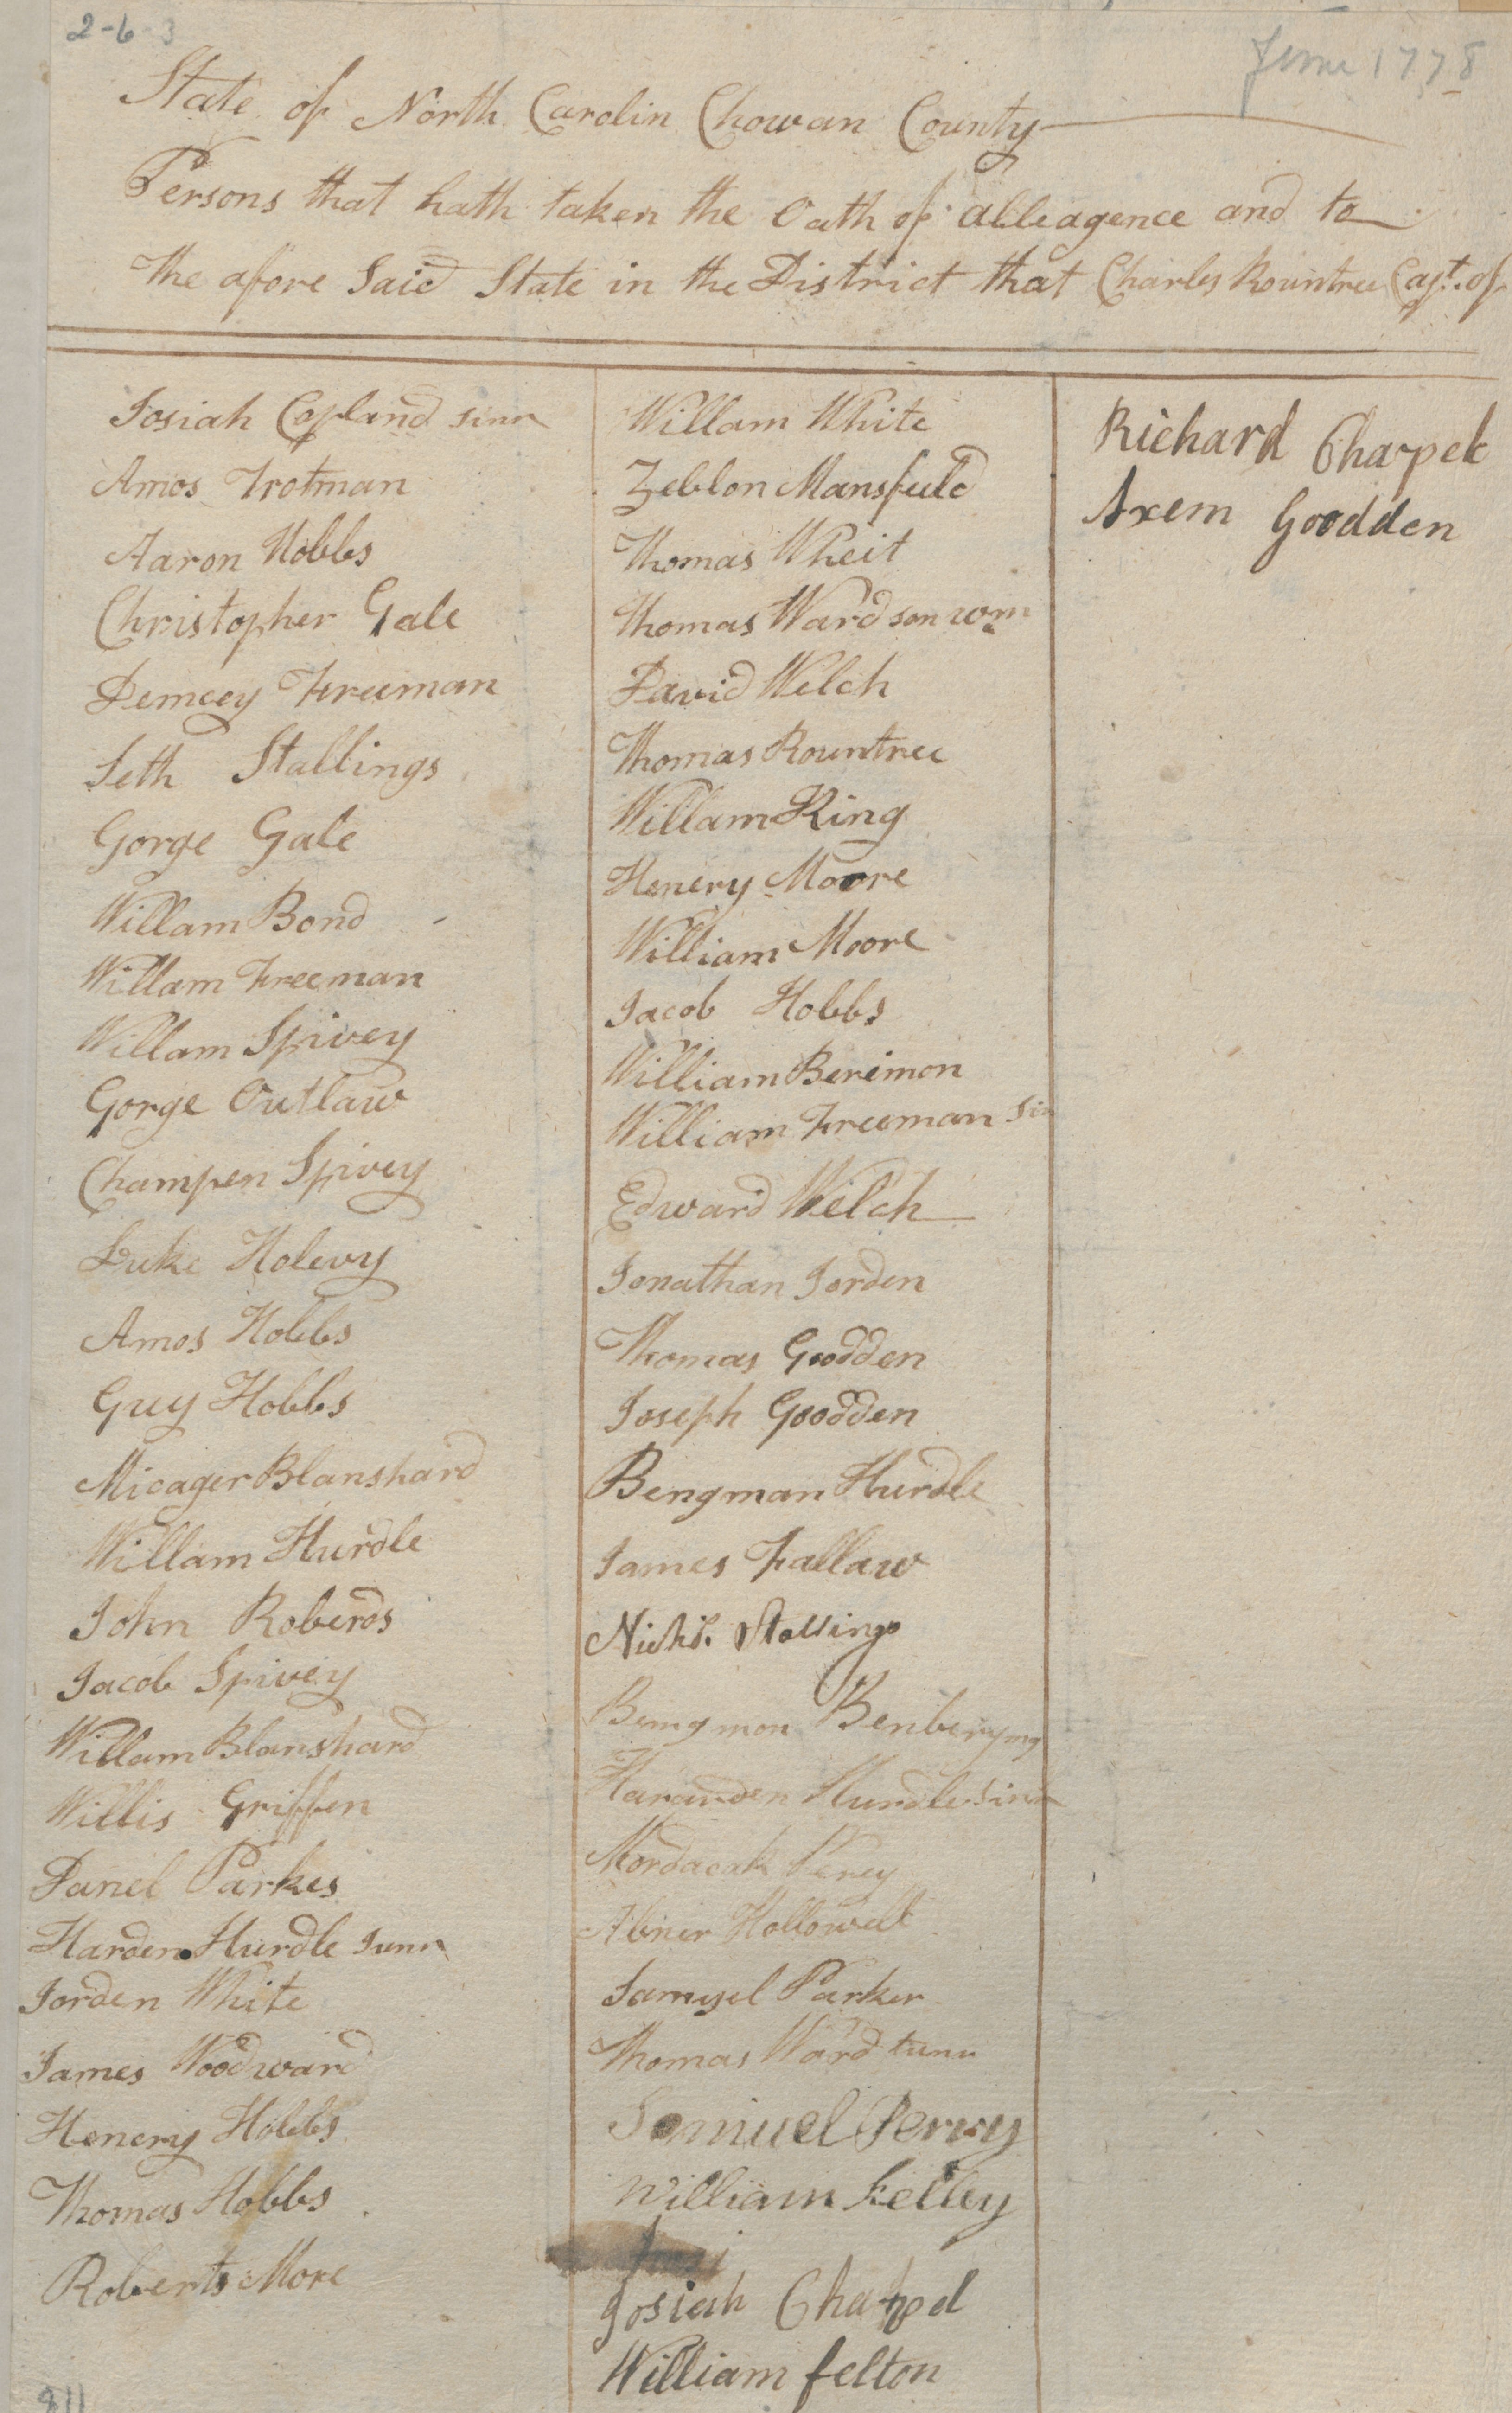 2-6-3
June 1778
State of North Carolin Chowan County
Persons that hath taken the Oath of alleagence and to
the afore Said State in the District that Charles Rountree Capt. of
Josiah Copland sinr
Amos Trotman
Aaron Hobbs
Christopher Gale
Demcey Freeman
Seth Stallings
Gorge Gale
Willam Bond
Willam Freeman
Willam Spivey
Gorge Outlaw
Champen Spivey
Luke Holevy
Amos Hobbs
Guy Hobbs
Micager Blanshard
Willam Hurdle
John Roberds
Jacob Spivey
Willam Blanshard
Willis Griffen
Danel Parkes
Harden Hurdle Junr
Jorden White
James Woodward
Henery Hobbs
Thomas Hobbs
Roberts More
811
Willam White
Zeblon Mansfield
Thomas Wheit
Thomas Ward son wm
David Welch
Thomas Rountree
Willam King
Henery Moore
William Moore
Jacob Hobbs
William Berimon
William Freeman Sin
Edward Welch
Jonathan Jorden
Thomas Goodden
Joseph Goodden
Bengman Hurdle
James Fallaw
Nichs. Stallings
Bengmon Benbery
Hurdle Sinr
Mordacak Perey
Abner Hollowell
Samuel Parker
Thomas Ward
Samuel Perry
William Kelley
Josiah Chapel
William felton
Richard Chapel
Axem Goodden